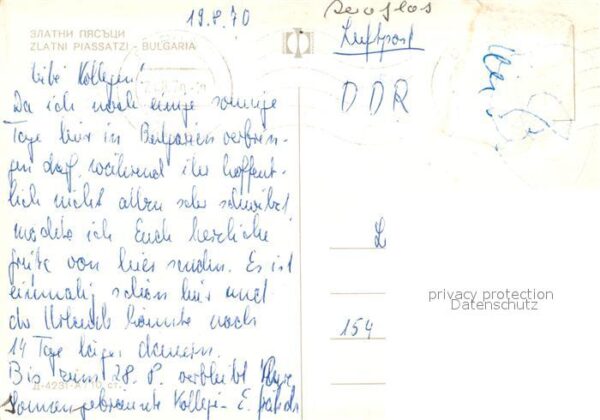 19.8.70
ЗЛАТНИ ПЯСЪЦИ
ZLATNI PIASSATZI - BULGARIA
Liebe Kollegen!
Da ich noch einige sonnige
Tage hier in Bulgarien verbrin-
gen darf, während ihr hoffent-
lich nicht allzu sehr schwitzt,
möchte ich Euch herzliche
Grüße von hier senden. Es ist
einmalig schön hier und
der Urlaub könnte noch
14 Tage länger dauern.
Bis zum 28. 8. verbleibt
sonnengebräunte E.
Д-4231-А
Luftpost
DDR
L
154
privacy protection
Datenschutz